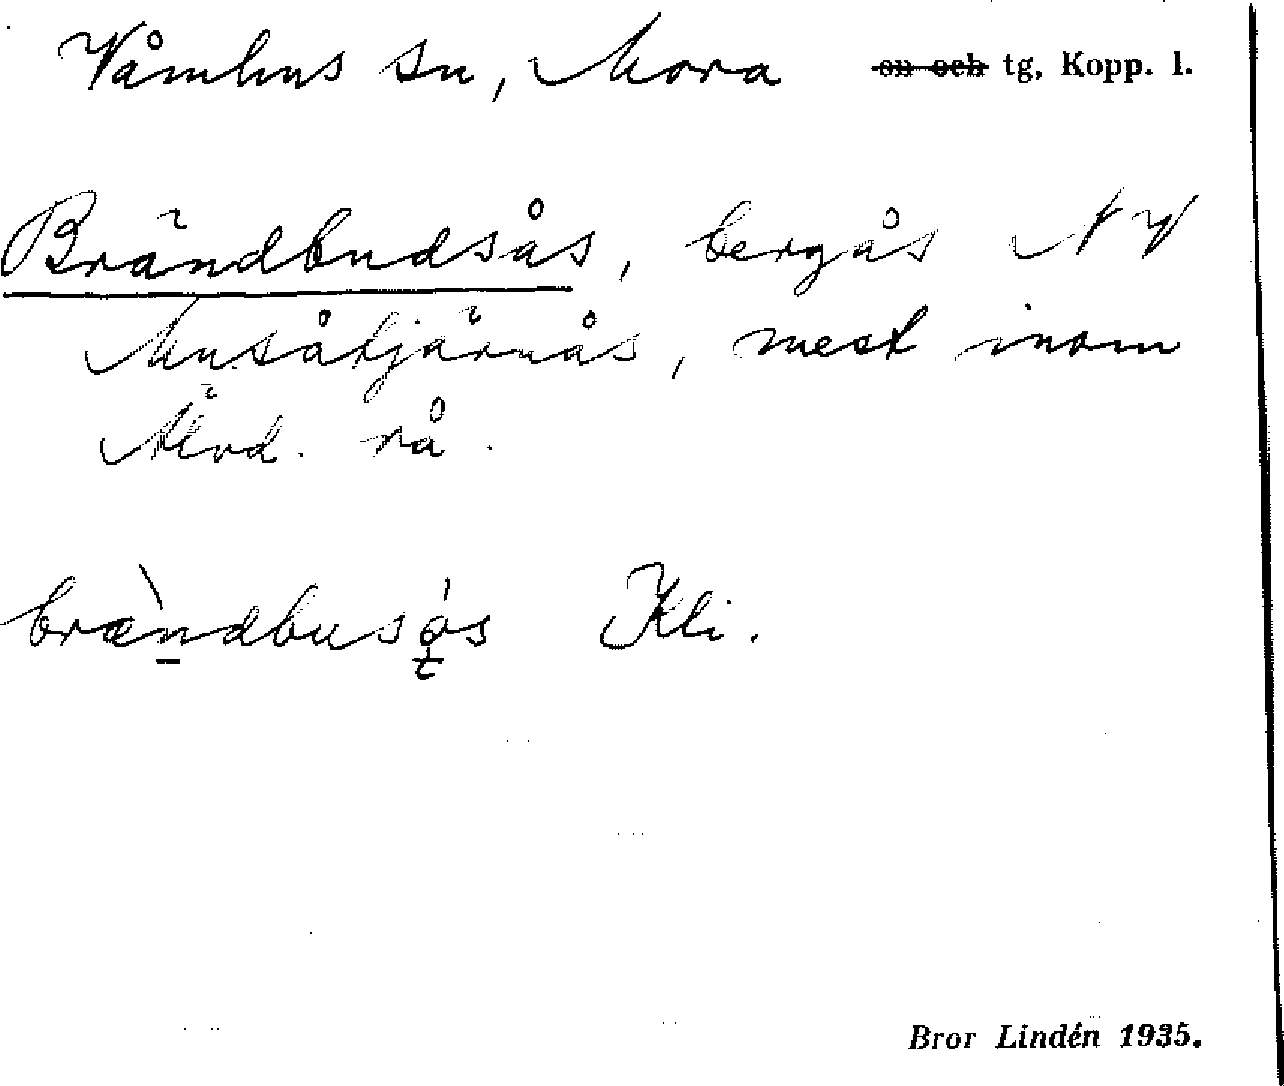 Våmhus sn, Mora sn och tg, Kopp. l.
Brändbudsås, bergås NV
Musåtjärnås, mest inom
Älvd. rå.
brændbusås Kli.
Bror Lindén 1935.